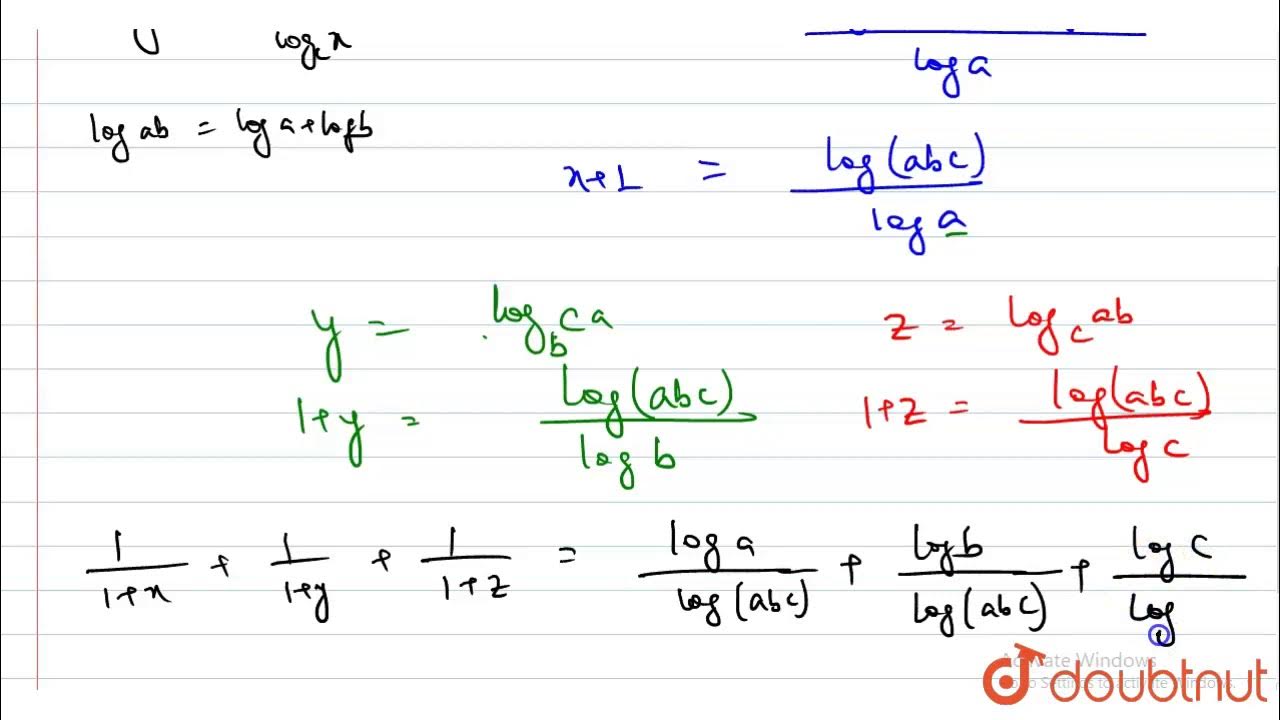 log_c x
log a
log ab = log a + log b
x+1 = log(abc) / log a
y = log_b ca
z = log_c ab
1+y = log(abc) / log b
1+z = log(abc) / log c
1/(1+x) + 1/(1+y) + 1/(1+z) = log a / log(abc) + log b / log(abc) + log c / log
Activate Windows
Go to Settings to activate Windows.
doubtnut